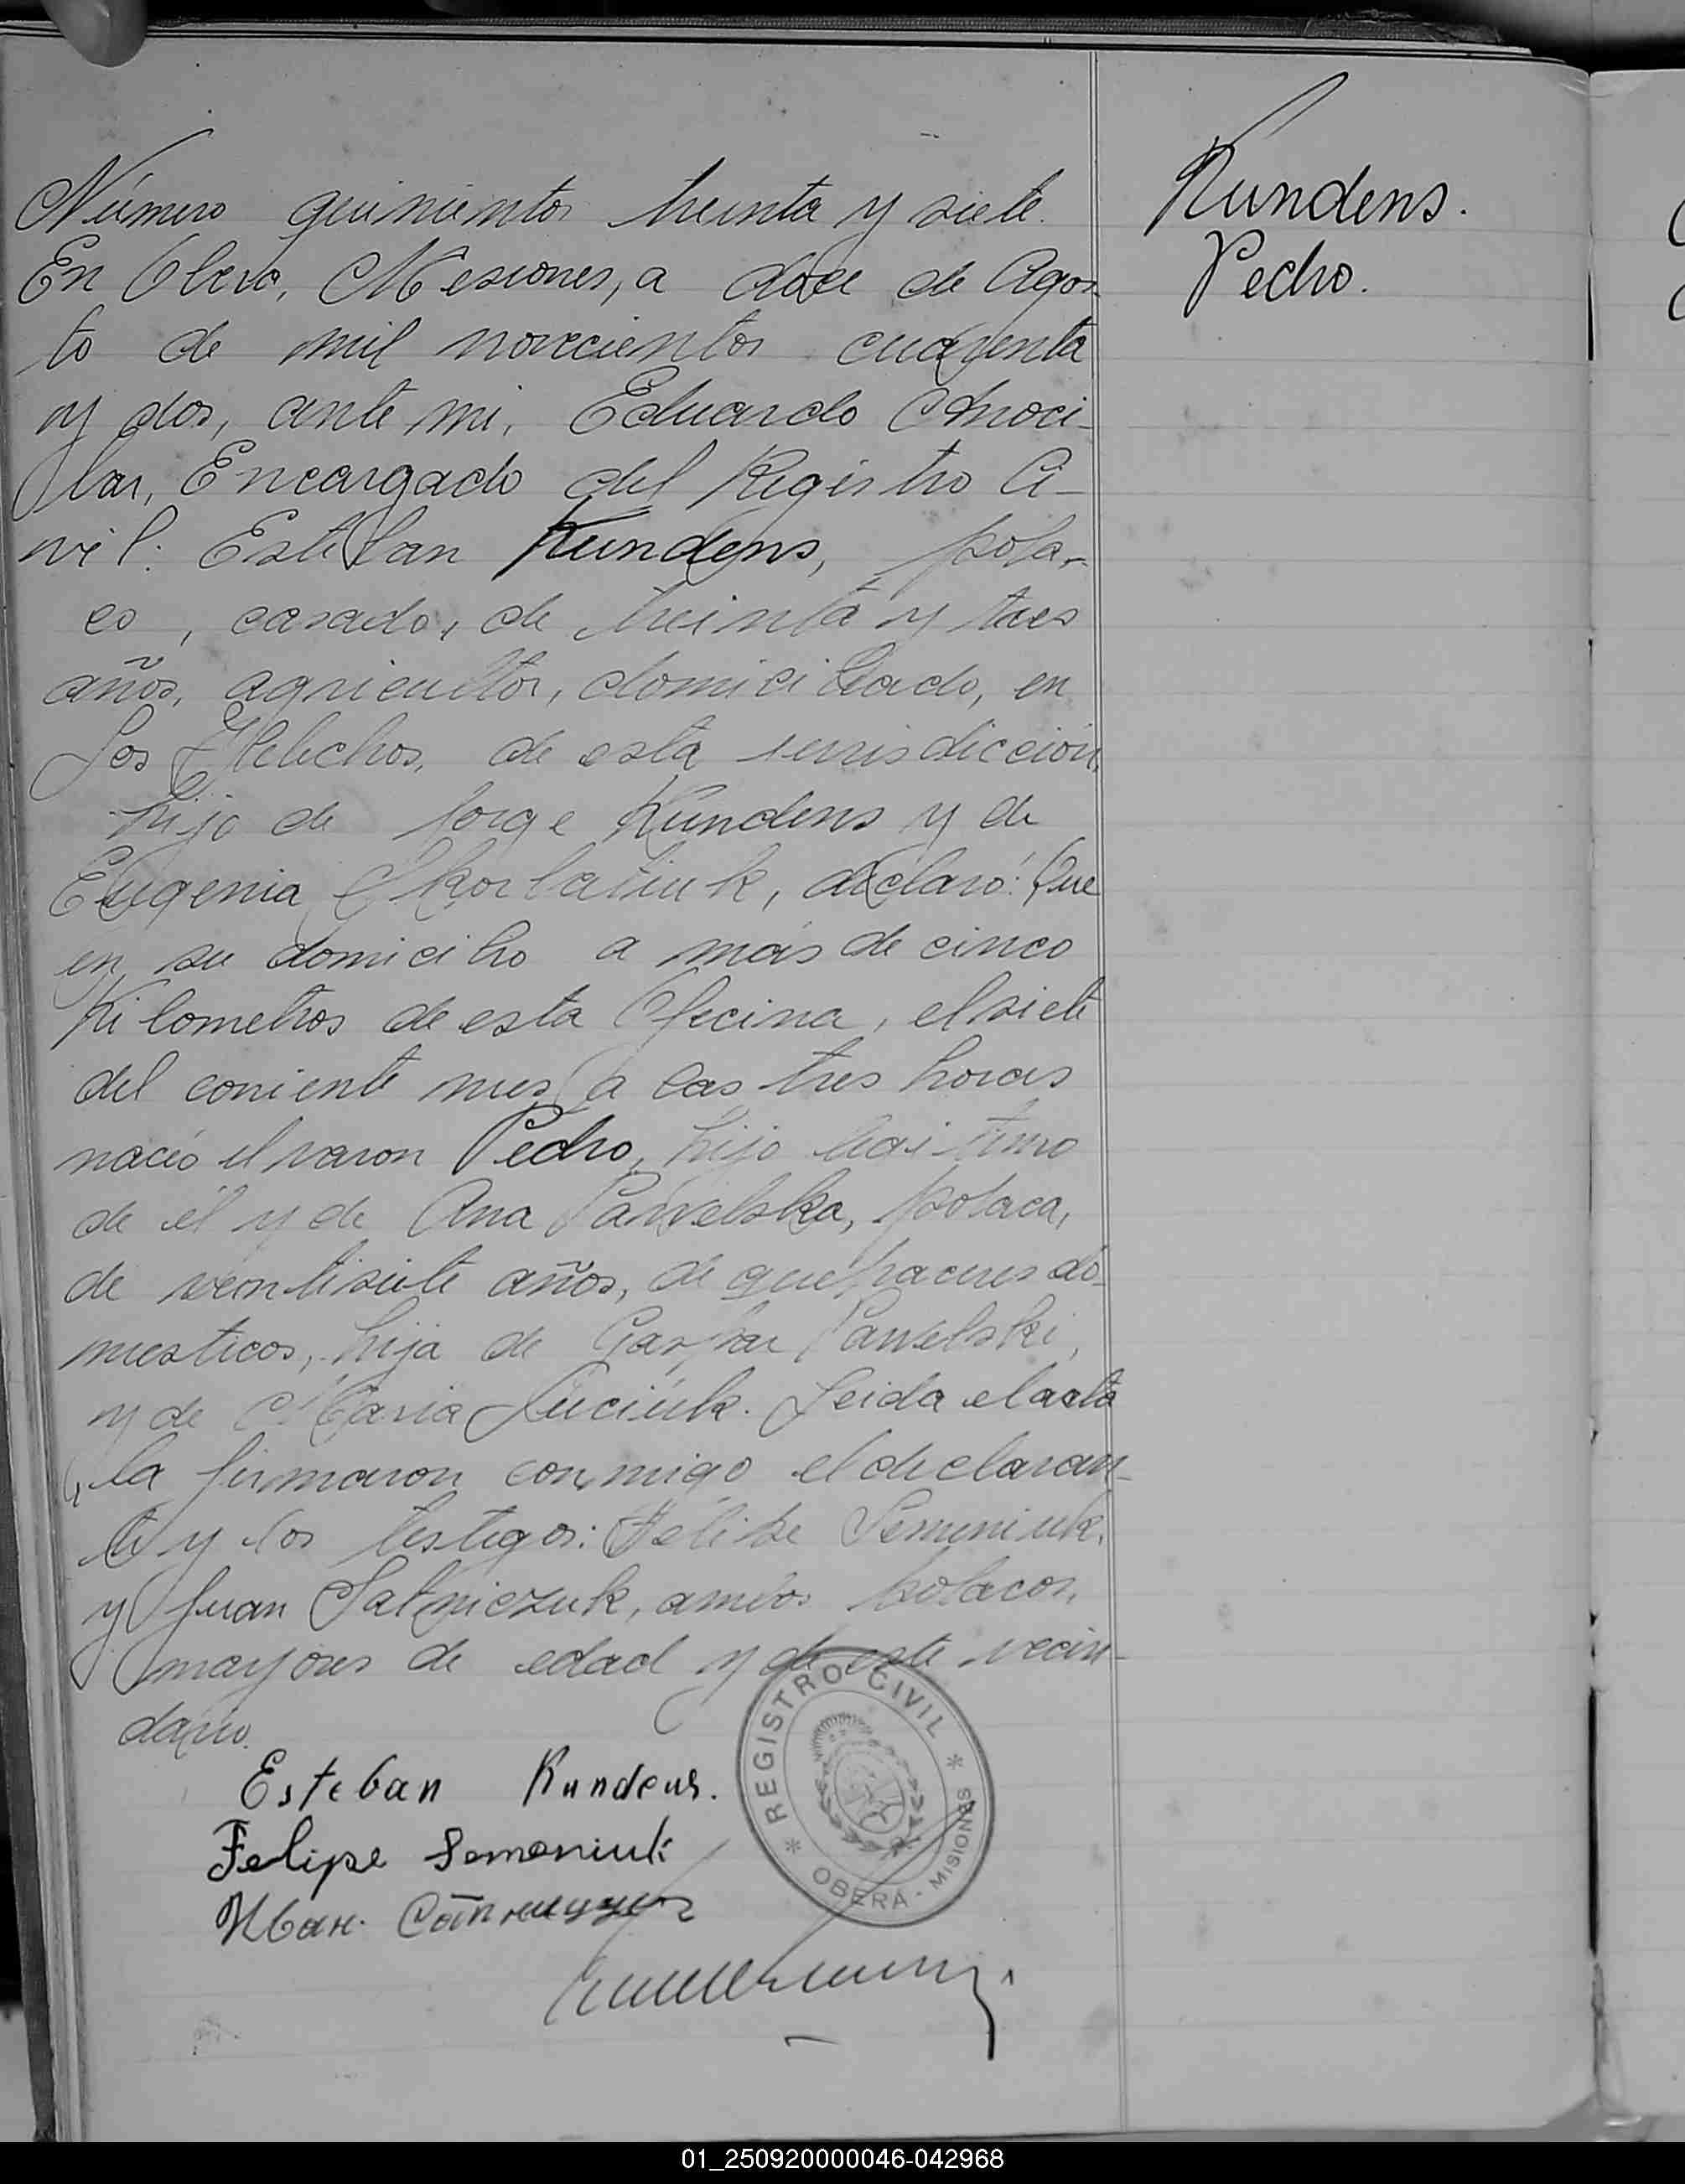 Número quinientos treinta y siete.
En Oberá, Misiones, a doce de Agos-
to de mil novecientos cuarenta
y dos, ante mi, Eduardo
Encargado del Registro Ci-
vil: Esteban Kundens, pola-
co, casado, de treinta y tres
años, agricultor, domiciliado, en
Los Helechos, de esta jurisdicción,
hijo de Jorge Kundens y de
Eugenia declaró: Que
en su domicilio a más de cinco
Kilometros de esta Oficina, el siete
del corriente mes, a las tres horas
nació el varon Pedro, hijo legitimo
de él y de Ana Pawelska, polaca,
de veintisiete años, de quehaceres do-
mesticos, hija de Gaspar Pawelski,
y de Maria Luciuk. Leida el acta
la firmaron conmigo el declaran-
te y los testigos: Felipe Semeniuk,
y Juan Satniczuk, ambos polacos,
mayores de edad y de este vecin-
dario.
Esteban Kundens.
Felipe Semeniuk
Иван
Kundens.
Pedro.
REGISTRO CIVIL
OBERÁ - MISIONES
01_250920000046-042968